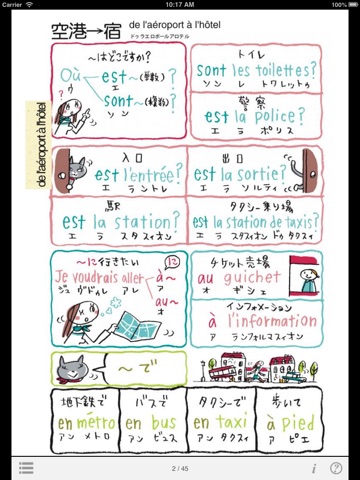 10:17 AM
空港→宿
de l'aéroport à l'hôtel
ドゥラエロポールアロテル
de l'aéroport à l'hôtel
〜はどこですか?
Où
ウ
est〜(単数)?
エ
sont〜(複数)?
ソン
トイレ
sont les toilettes?
ソン レ トワレットゥ
警察
est la police?
エ ラ ポリス
入口
est l'entrée?
エ ラントレ
出口
est la sortie?
エ ラ ソルティ
駅
est la station?
エ ラ スタスィオン
タクシー乗り場
est la station de taxis?
エ ラ スタスィオン ドゥ タクスィ
〜に行きたい
に
Je voudrais aller
ジュ ヴドゥレ アレ
à〜
ア
au〜
オ
チケット売場
au guichet
オ ギシェ
インフォメーション
à l'information
ア ランフォルマスィオン
〜で
地下鉄で
en métro
アン メトロ
バスで
en bus
アン ビュス
タクシーで
en taxi
アン タクスィ
歩いて
à pied
ア ピエ
2 / 45